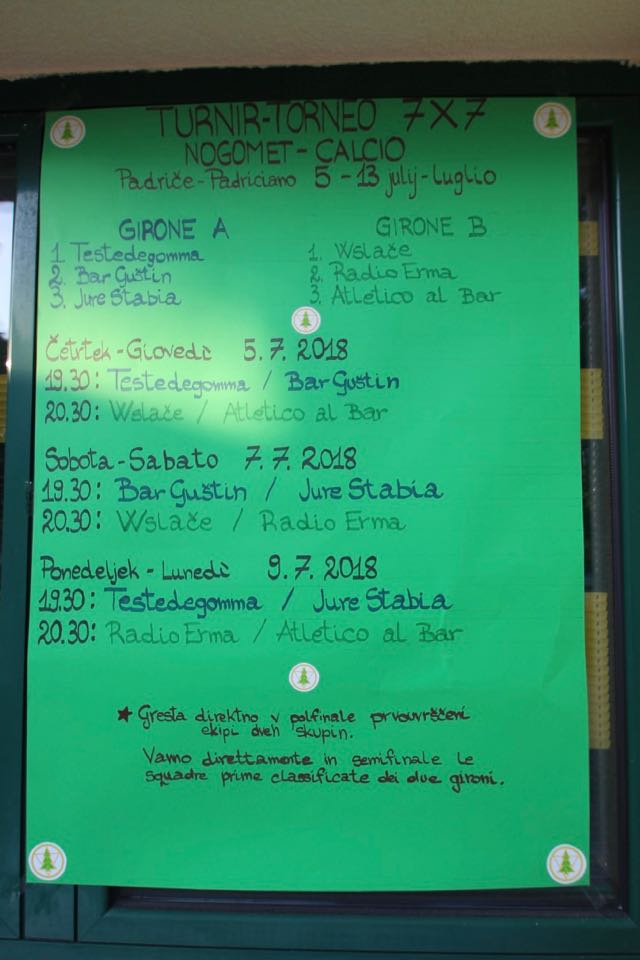 TURNIR-TORNEO 7X7
NOGOMET-CALCIO
Padriče-Padriciano 5-13 julij-luglio
GIRONE A
1 Testedegomma
2. Bar Guštin
3. Jure Stabia
GIRONE B
1. Wslače
2. Radio Erma
3. Atletico al Bar
Četrtek-Giovedì 5.7.2018
19.30: Testedegomma / Bar Guštin
20.30: Wslače / Atletico al Bar
Sobota-Sabato 7.7.2018
19.30: Bar Guštin / Jure Stabia
20.30: Wslače / Radio Erma
Ponedeljek-Lunedì 9.7.2018
19.30: Testedegomma / Jure Stabia
20.30: Radio Erma / Atletico al Bar
★ Gresta direktno v polfinale prvouvrščeni
ekipi dveh skupin.
Vanno direttamente in semifinale le
squadre prime classificate dei due gironi.